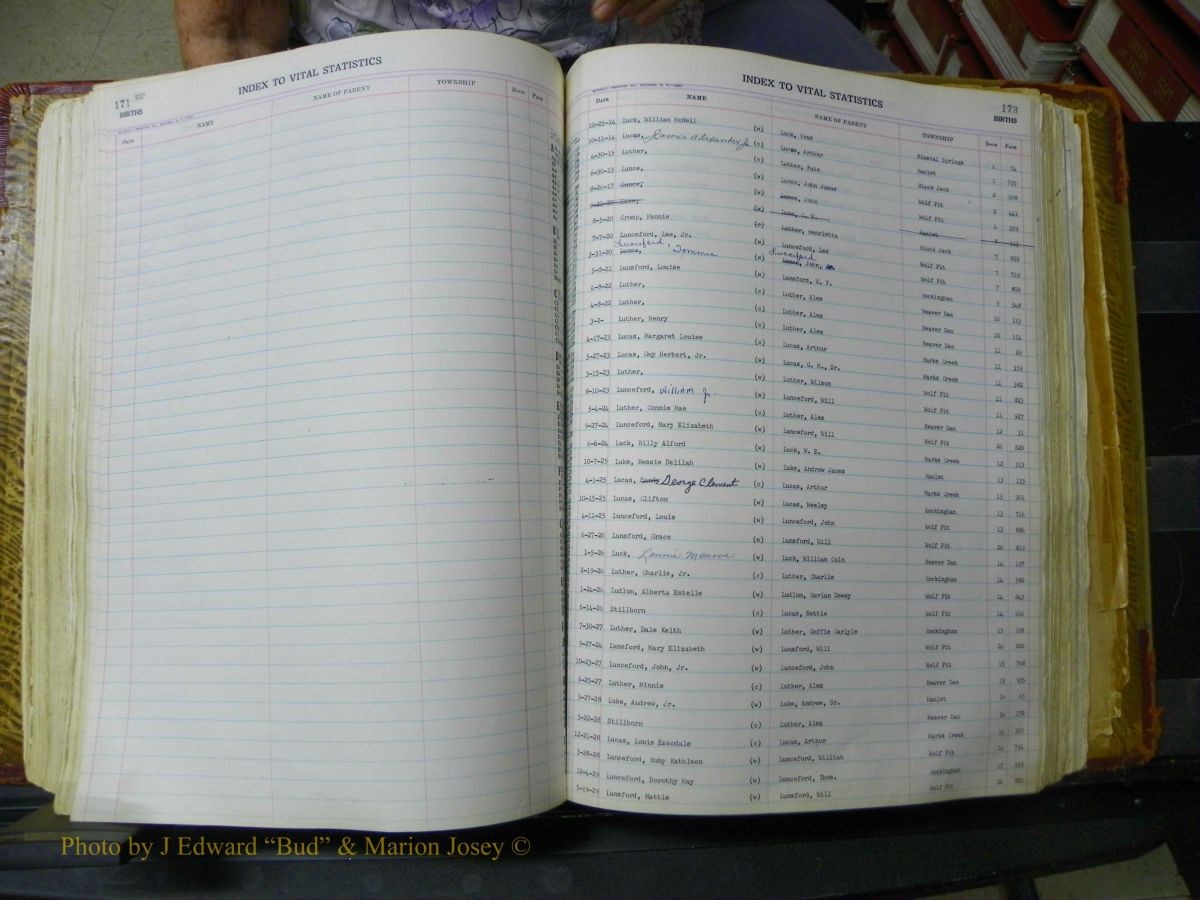 171
BIRTHS
INDEX TO VITAL STATISTICS
Date NAME NAME OF PARENT TOWNSHIP Book Page
INDEX TO VITAL STATISTICS
173
BIRTHS
Date NAME NAME OF PARENT TOWNSHIP Book Page
10-25-14 Luck, William McNeil (w) Luck, Fred Mineral Springs 1 74
10-11-14 Lucas, James Alexander Jr. (c) Lucas, Arthur Hamlet 1 755
4-30-15 Luther, (c) Luther, Pate Black Jack 2 168
6-30-15 Lunce, (w) Lunce, John Junus Wolf Pit 2 441
8-20-17 Lunce, (w) Lunce, John Wolf Pit 4 359
9-21-20 Luse, (w) Luse, C. W. Hamlet 7
8-5-20 Crump, Fannie (c) Luther, Henrietta Black Jack 7 252
7-7-20 Lunceford, Lee, Jr. (w) Lunceford, Lee Wolf Pit 7 719
3-31-20 Lunce, Lunceford, Tommie (w) Lunce, John, Lunceford Wolf Pit 7 802
5-8-21 Lunsford, Louise (w) Lunsford, W. F. Rockingham 9 548
4-8-22 Luther, (c) Luther, Alex Beaver Dam 10 153
4-8-22 Luther, (c) Luther, Alex Beaver Dam 10 154
3-2- Luther, Henry (c) Luther, Alex Beaver Dam 11 29
4-17-23 Lucas, Margaret Louise (c) Lucas, Arthur Marks Creek 11 359
5-27-23 Lucas, Guy Herbert, Jr. (w) Lucas, G. H., Sr. Marks Creek 11 362
3-15-23 Luther, (w) Luther, Wilson Wolf Pit 11 623
8-10-23 Lunceford, William Jr. (w) Lunceford, Will Wolf Pit 11 627
5-4-24 Luther, Connie Mae (c) Luther, Alex Beaver Dam 12 31
9-27-24 Lunceford, Mary Elizabeth (w) Lunceford, Will Wolf Pit 26 620
6-6-24 Luck, Billy Alford (w) Luck, W. E. Marks Creek 12 313
10-7-25 Luke, Bessie Delilah (w) Luke, Andrew James Hamlet 13 133
4-1-25 Lucas, George Clement (c) Lucas, Arthur Marks Creek 13 301
10-15-25 Lucas, Clifton (w) Lucas, Wesley Rockingham 13 716
4-11-25 Lunceford, Louis (w) Lunceford, John Wolf Pit 13 886
6-27-26 Lunsford, Grace (w) Lunsford, Will Wolf Pit 26 819
1-5-26 Luck, Lonnie Monroe (w) Luck, William Colm Beaver Dam 14 197
2-19-26 Luther, Charlie, Jr. (c) Luther, Charlie Rockingham 14 562
1-24-26 Ludlum, Alberta Estelle (w) Ludlum, Dewey Wolf Pit 14 843
6-14-26 Stillborn (c) Lucas, Nettie Wolf Pit 14 916
7-30-27 Luther, Dale Keith (w) Luther, Goffie Carlyle Rockingham 15 108
9-27-24 Lunsford, Mary Elizabeth (w) Lunsford, Will Wolf Pit 26 620
10-23-27 Lunceford, John, Jr. (w) Lunceford, John Wolf Pit 15 768
6-25-27 Luther, Minnie (c) Luther, Alex Beaver Dam 15 935
5-27-28 Luke, Andrew, Jr. (w) Luke, Andrew, Sr. Hamlet 16
5-22-28 Stillborn (c) Luther, Alex Beaver Dam 16 178
12-21-28 Lucas, Louis Ensodale (c) Lucas, Arthur Marks Creek 16 325
3-28-28 Lunceford, Ruby Kathleen (w) Lunceford, William Wolf Pit 16 734
12-4-29 Lunceford, Dorothy May (w) Lunceford, Thos. Rockingham 17 555
5-19-29 Lunsford, Mattie (w) Lunsford, Will Wolf Pit 26 821
Photo by J Edward “Bud” & Marion Josey ©